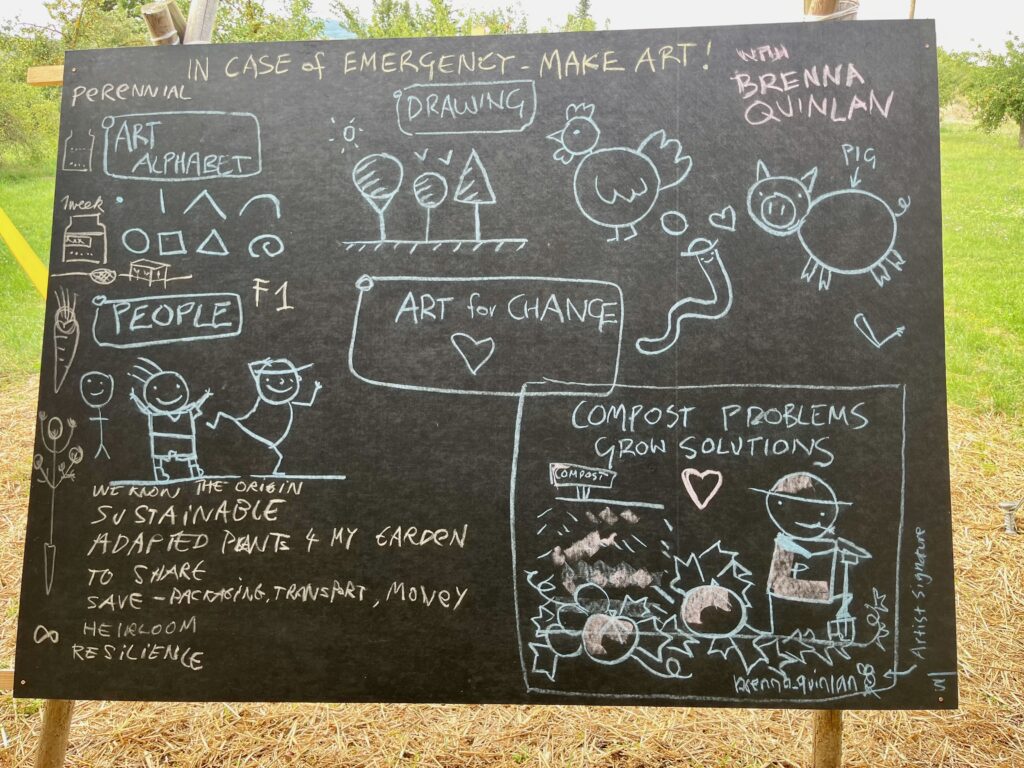 IN CASE of EMERGENCY - MAKE ART!
WITH
BRENNA
QUINLAN
PERENNIAL
ART
ALPHABET
DRAWING
PIG
1 week
F1
PEOPLE
ART for CHANGE
WE KNOW THE ORIGIN
SUSTAINABLE
ADAPTED PLANTS 4 MY GARDEN
TO SHARE
SAVE - PACKAGING, TRANSPORT, MONEY
HEIRLOOM
RESILIENCE
COMPOST PROBLEMS
GROW SOLUTIONS
COMPOST
P
brenna_quinlan
Artist Signature